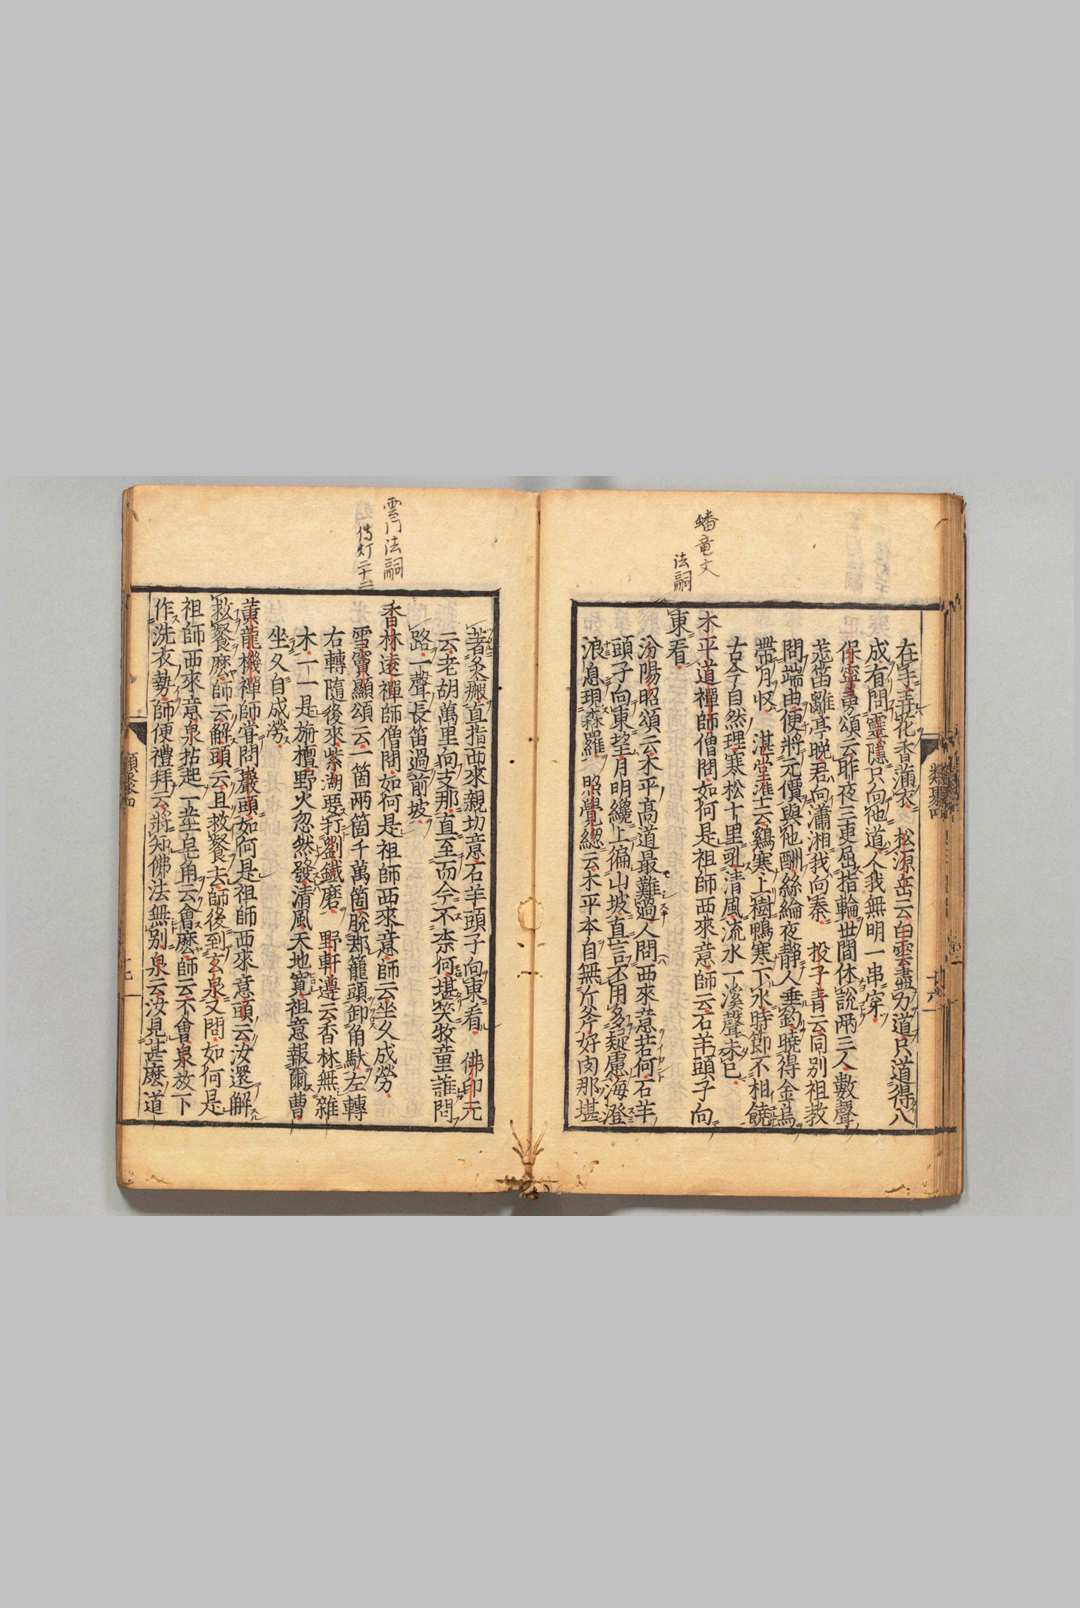 蟠竜文
法嗣
在手弄花香滿衣 松源岳云白雲盡力道只道得八
成有問靈隱只向他道人我無明一串穿
保寧勇頌云昨夜三更屈指輪世間休說兩三人數聲
羌笛離亭晚君向瀟湘我向秦 投子青云同別祖教
問端由便將元價與他酬絲綸夜靜人垂釣曉得金烏
帶月收 湛堂準云鷄寒上樹鴨寒下水時節不相饒
古今自然理寒松十里吼清風流水一溪聲未已
木平道禪師僧問如何是祖師西來意師云石羊頭子向
東看
汾陽昭頌云木平高道最難過人問西來意若何石羊
頭子向東望月明纔上徧山坡直言不用多疑慮海澄
浪息現森羅 照覺總云木平本自無斤斧好肉那堪
類聚四
十八
雲門法嗣
傳灯二十二
著炙瘢直指西來親切意石羊頭子向東看 佛印元
云老胡萬里向支那直至而今不柰何堪笑牧童誰問
路一聲長笛過前坡
香林遠禪師僧問如何是祖師西來意師云坐久成勞
雪竇顯頌云一箇兩箇千萬箇脫却籠頭卸角馱左轉
右轉隨後來紫湖要打劉鐵磨 野軒遵云香林無雜
木一一是旃檀野火忽然發清風天地寬祖意報爾曹
坐久自成勞
黃龍機禪師嘗問巖頭如何是祖師西來意頭云汝還解
救餈麽師云解頭云且救餈去師後到玄泉又問如何是
祖師西來意泉拈起一莖皂角云會麽師云不會泉放下
作洗衣勢師便禮拜云將知佛法無別泉云汝見甚麽道
類聚四
十九